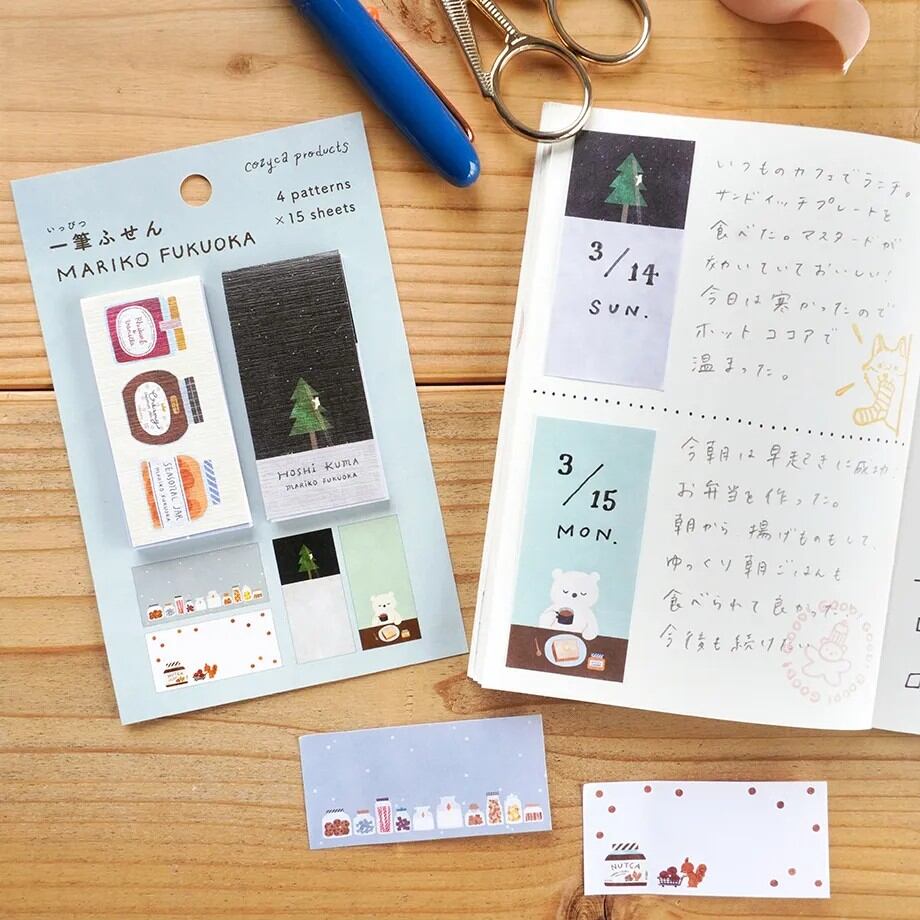 cozyca products
4 patterns
×15 sheets
いっぴつ
一筆ふせん
MARIKO FUKUOKA
Rhubarb
&
Vanilla
SEASONAL JAR
MARIKO FUKUOKA
HOSHI KUMA
MARIKO FUKUOKA
NUTCA
3/14
SUN.
いつものカフェでランチ。
サンドイッチプレートを
食べた。マスタードが
効いていておいしい!
今日は寒かったので
ホットココアで
温まった。
3/15
MON.
今朝は早起きに成功
お弁当を作った。
朝から揚げものもして、
ゆっくり朝ごはんも
食べられて良かった!
今後も続けたい
GOOD! GOOD! GOOD!
NUTCA